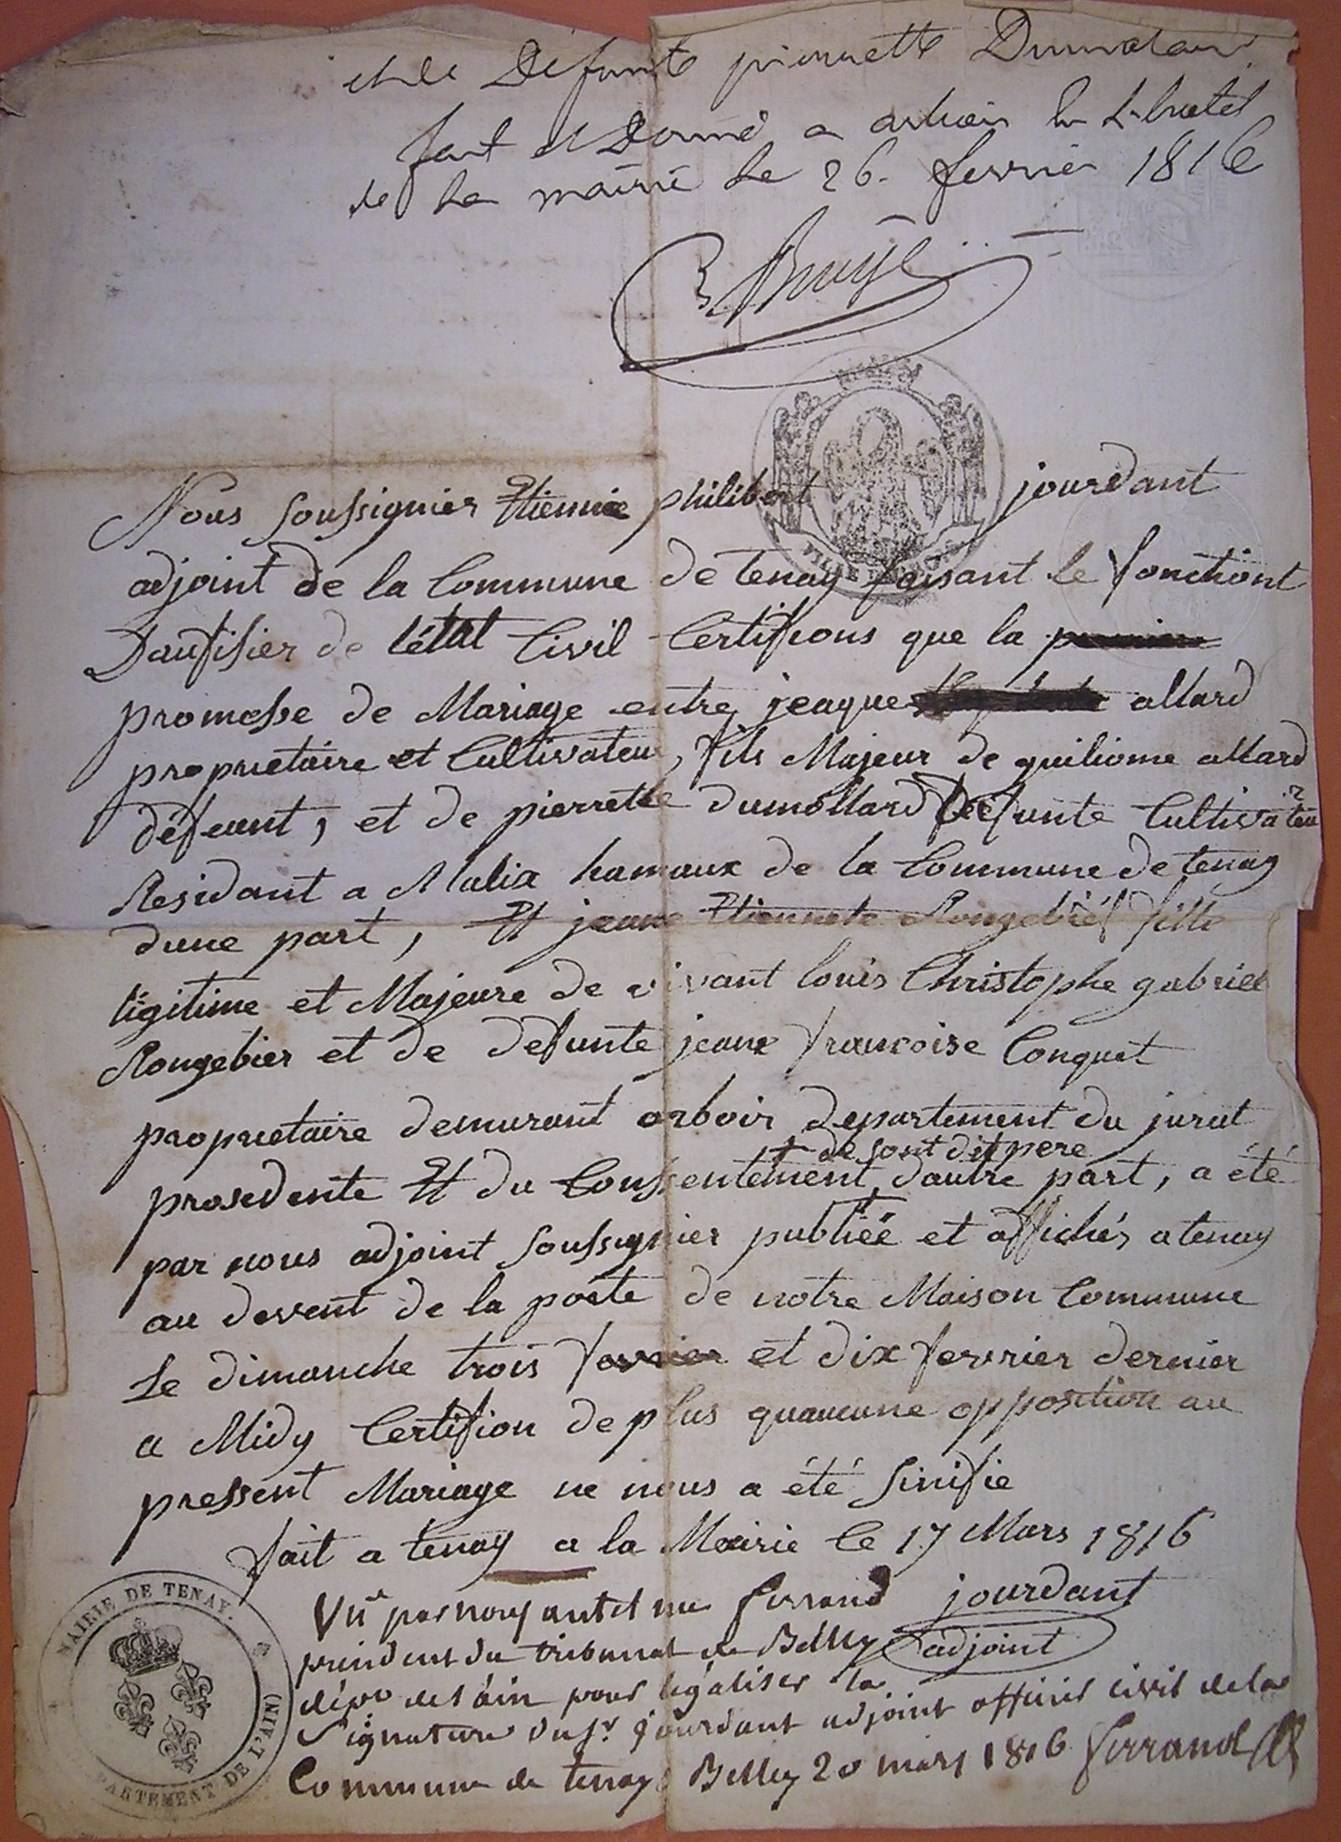 et de Defunte pierrette Dumolard
fait et Donné a arbois en L hotel
de la mairie le 26. fevrier 1816
Nous soussignier Etienne philibert jourdant
adjoint de la Commune de tenay faisant le fonctiont
Daufisier de létat Civil Certifions que la
promesse de Mariage entre jeaque allard
proprietaire et Cultivateur, fils Majeur de guiliome allard
défeunt, et de pierrette dumollard Defunte Cultivateur
Residant a Malix hamaux de la Commune de tenay
dune part, Et jeane Etiennete Rougebief fille
légitime et Majeure de vivant louis Christophe gabriel
Rougebier et de defunte jeane francoise Conquet
proprietaire demurant arbois departement du jurat
de sont dit pere
prosedente Et du Conssentement dautre part, a été
par nous adjoint soussignier publiéé et affichés a tenay
au devent de la porte de notre Maison Commune
Le dimanche trois et dix fervrier dernier
a Midy Certifion de plus quaucune opposition au
pressent Mariage ne nous a été sinifie
fait a tenay a la Mairie le 17 Mars 1816
jourdant
adjoint
Vu par nous ferrand
president du tribunal de Belley
dépt de l'ain pour légaliser la
Signature du sr jourdant adjoint officier civil de la
Commune de tenay Belley 20 mars 1816 ferrand
MAIRIE DE TENAY.
DEPARTEMENT DE L'AIN